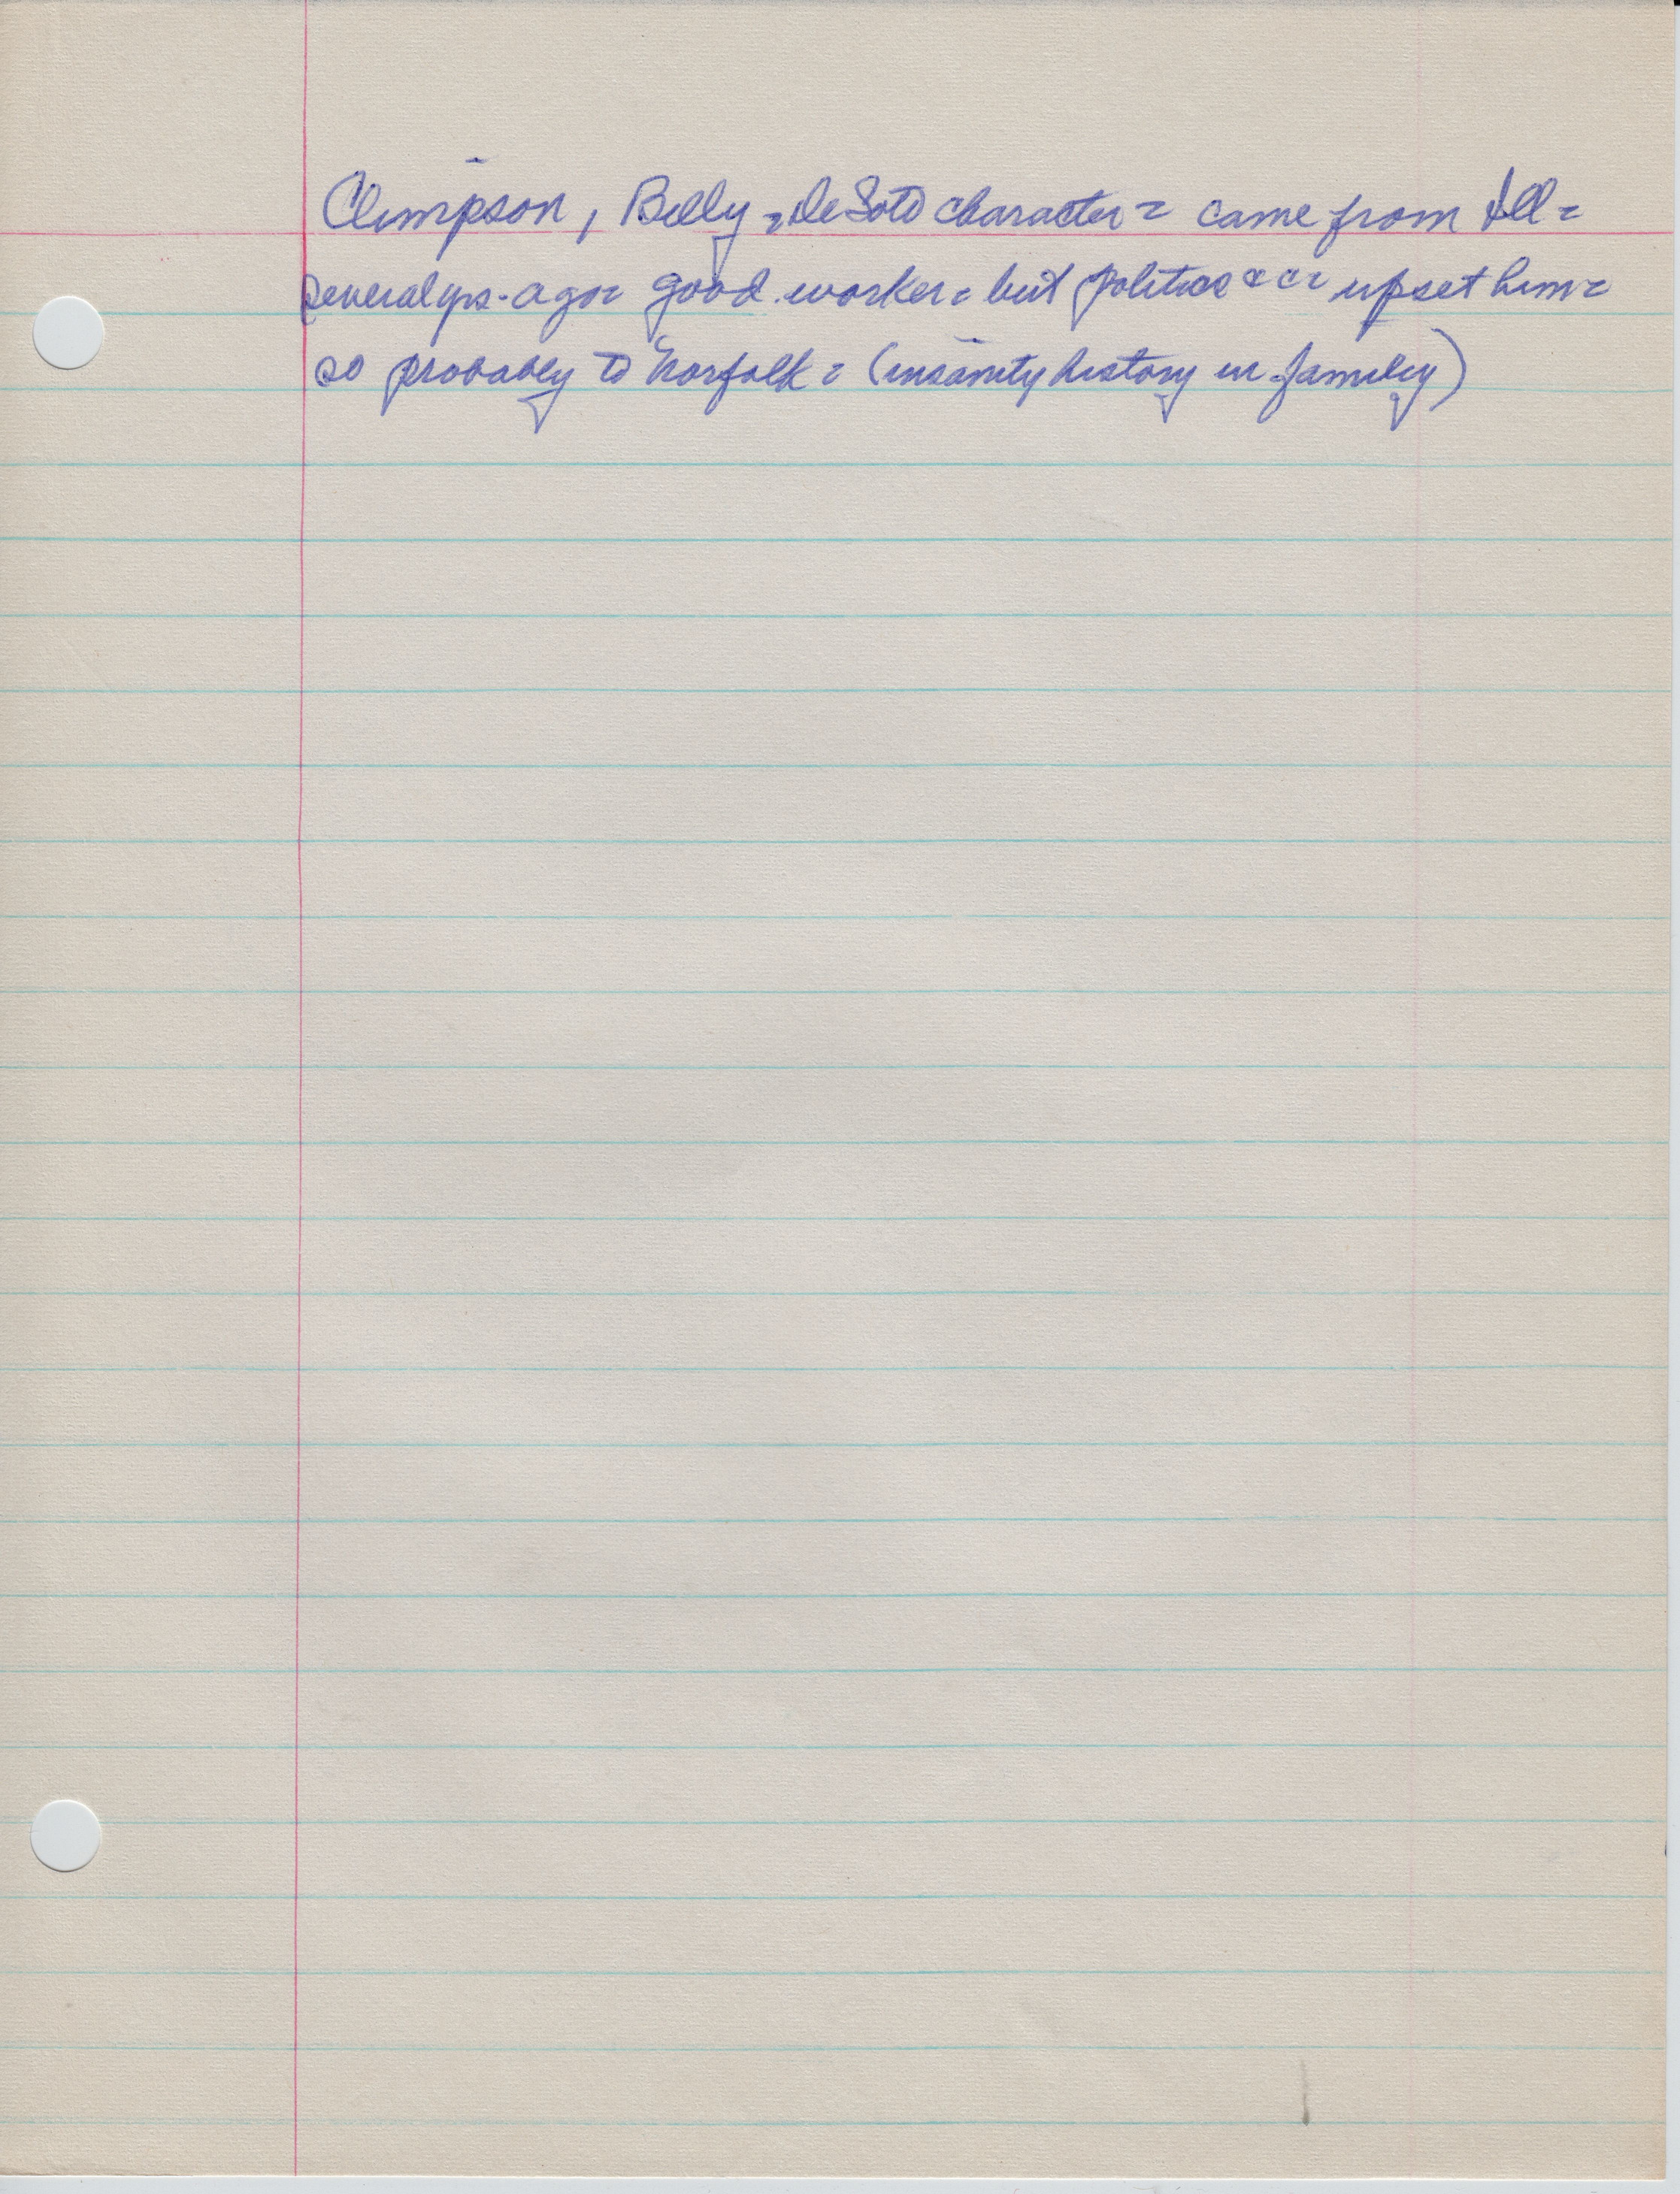 Climpson, Billy = DeSoto character = came from Ill =
several yrs. ago = good worker = but politics &c &c = upset him =
so probably to Norfolk = (insanity history in family)